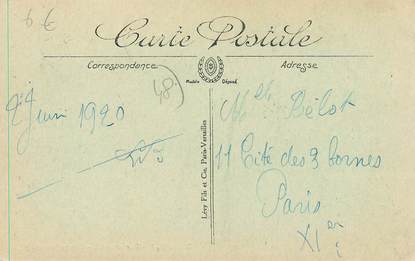 6 €
Carte Postale
Correspondance
Adresse
Modèle Déposé
48
Mlle Bélot
2 Juin 1920
11 Cité des 3 bornes
Paris
XIer
Lévy Fils et Cie, Paris-Versailles